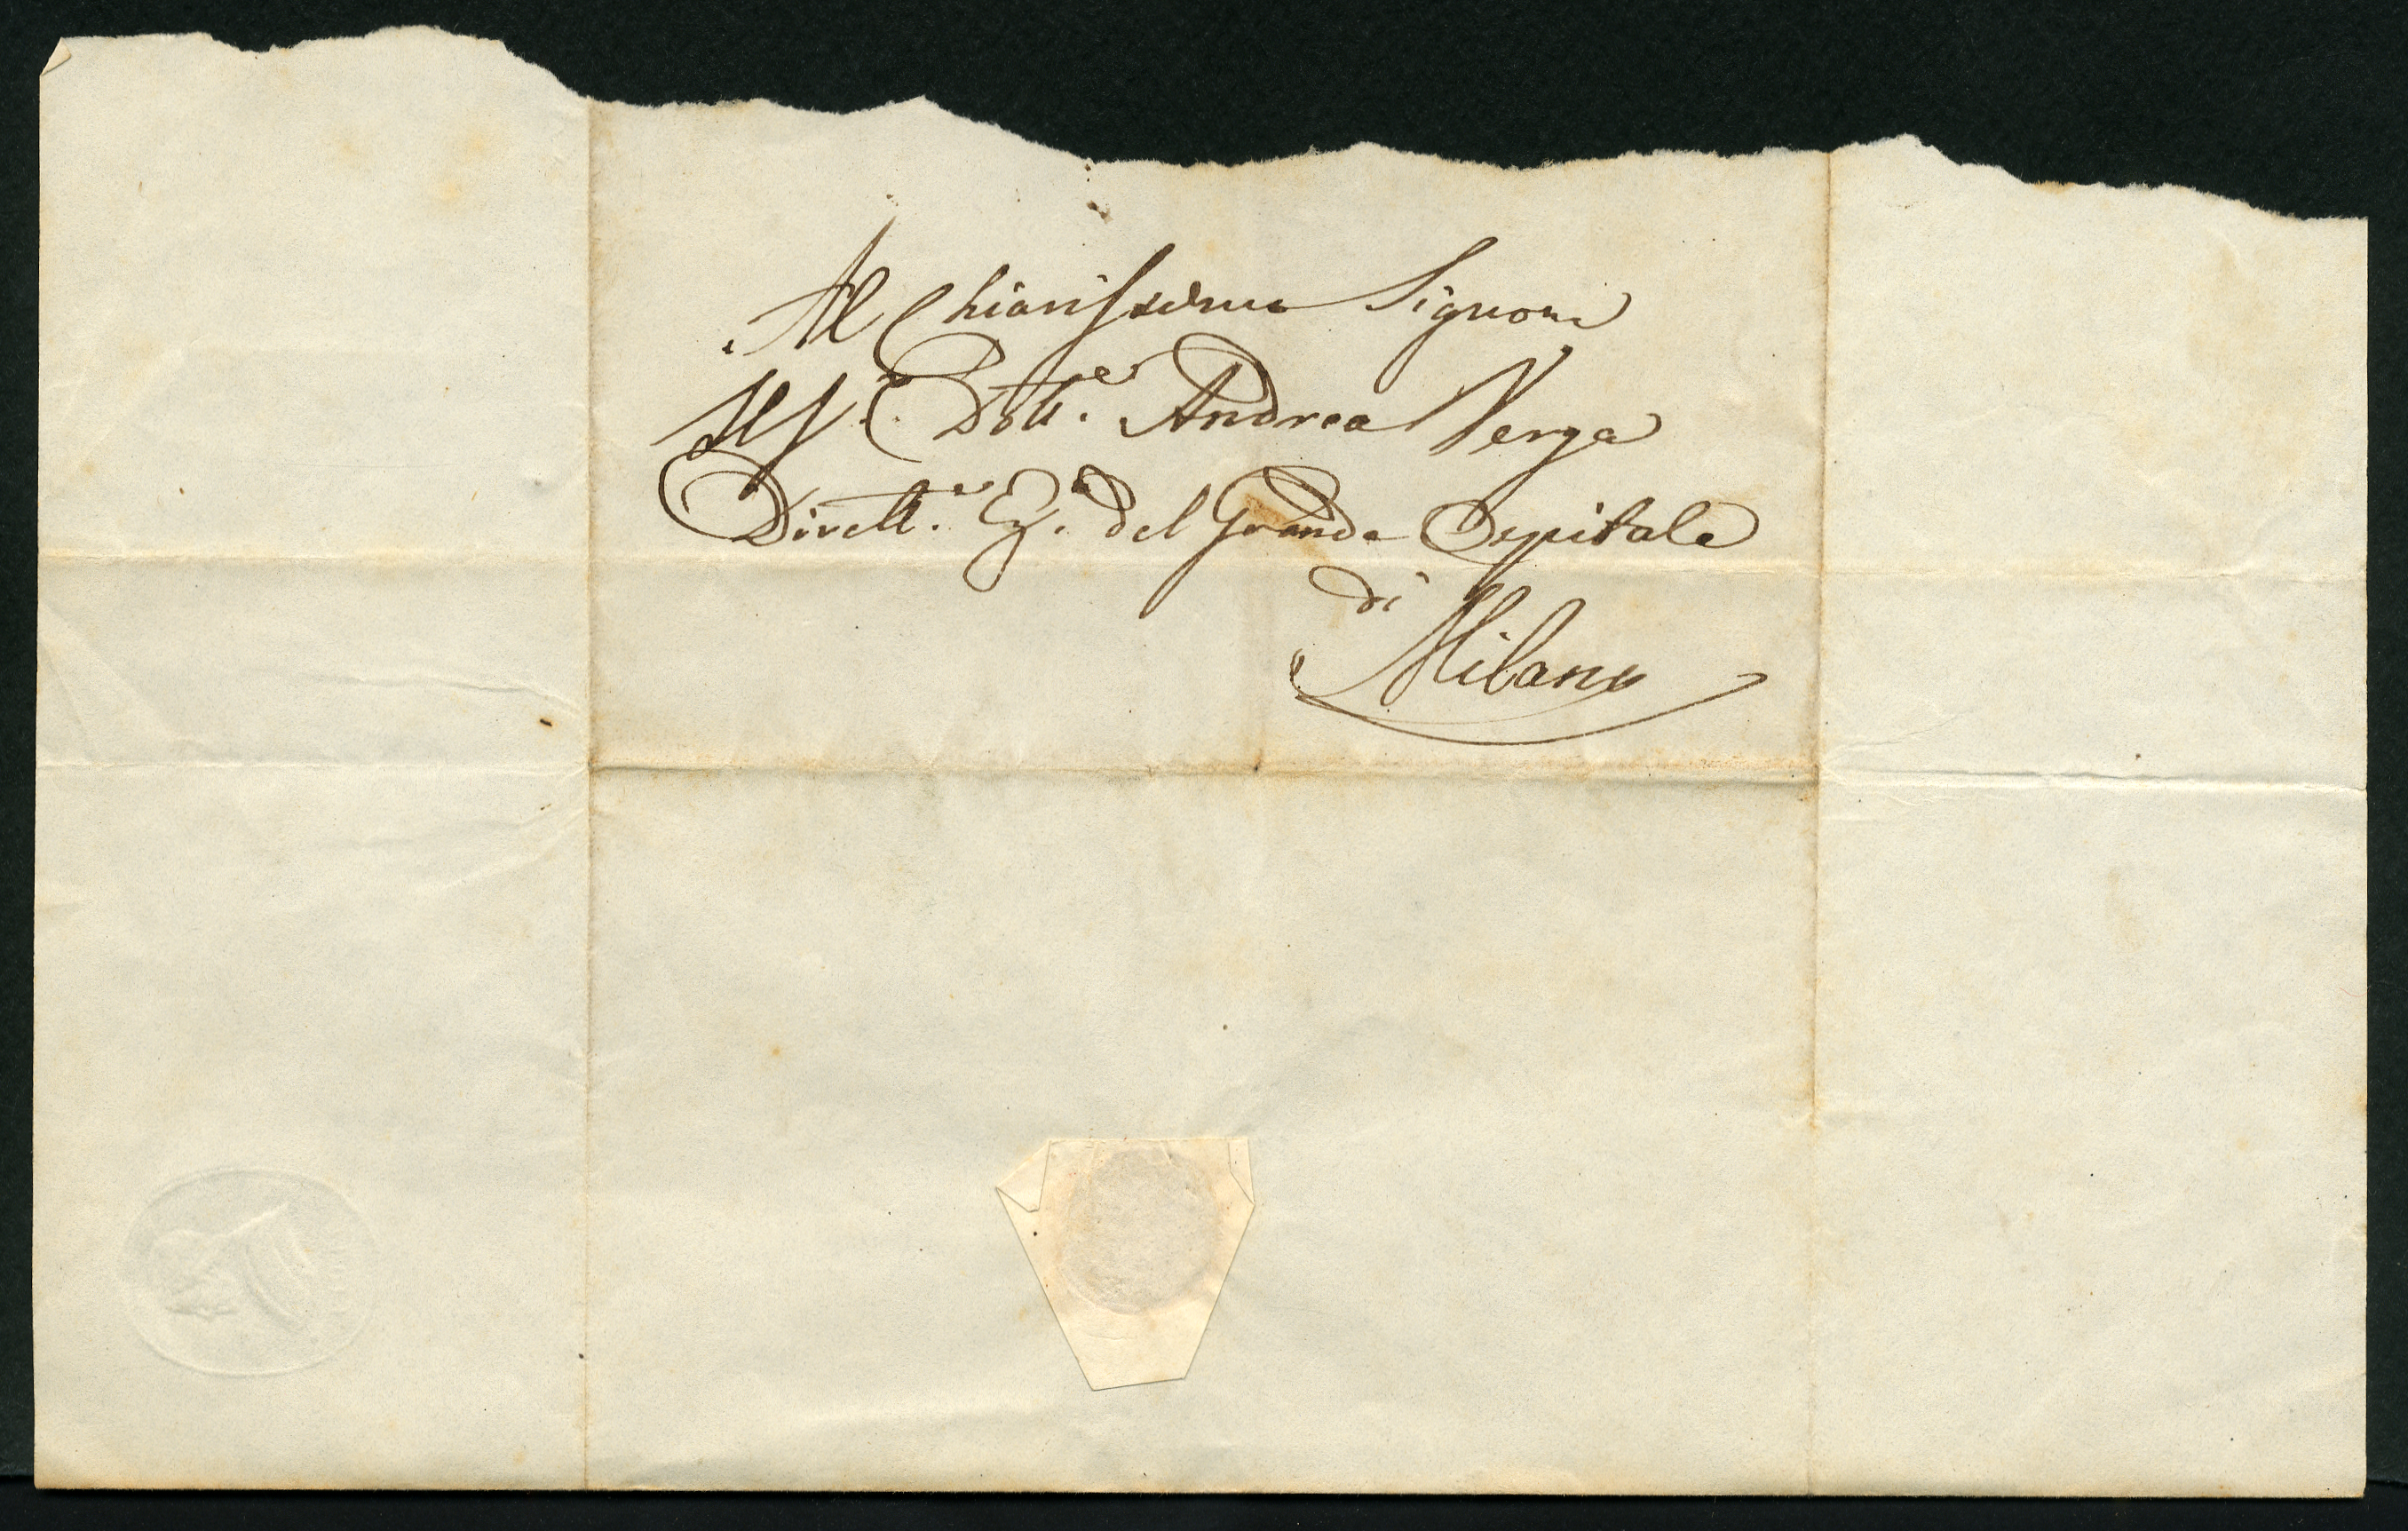 Al Chiarissimo Signore
Il S.r Dott.e Andrea Verga
Dirett.e del Grande Ospitale
di
Milano